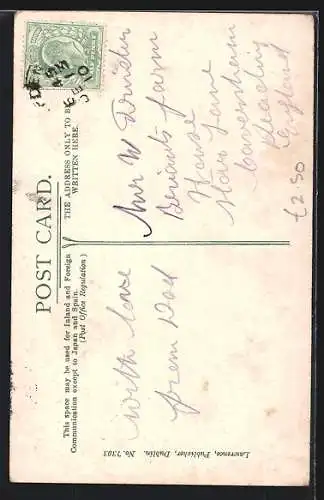 POST CARD.
This space may be used for Inland and Foreign
Communication except to Japan and Spain.
(Post Office Regulation)
THE ADDRESS ONLY TO BE
WRITTEN HERE.
with love
from Dad
W
farm
House
Lane
Caversham
Reading
England
£2.50
Lawrence, Publisher, Dublin. No. 7303